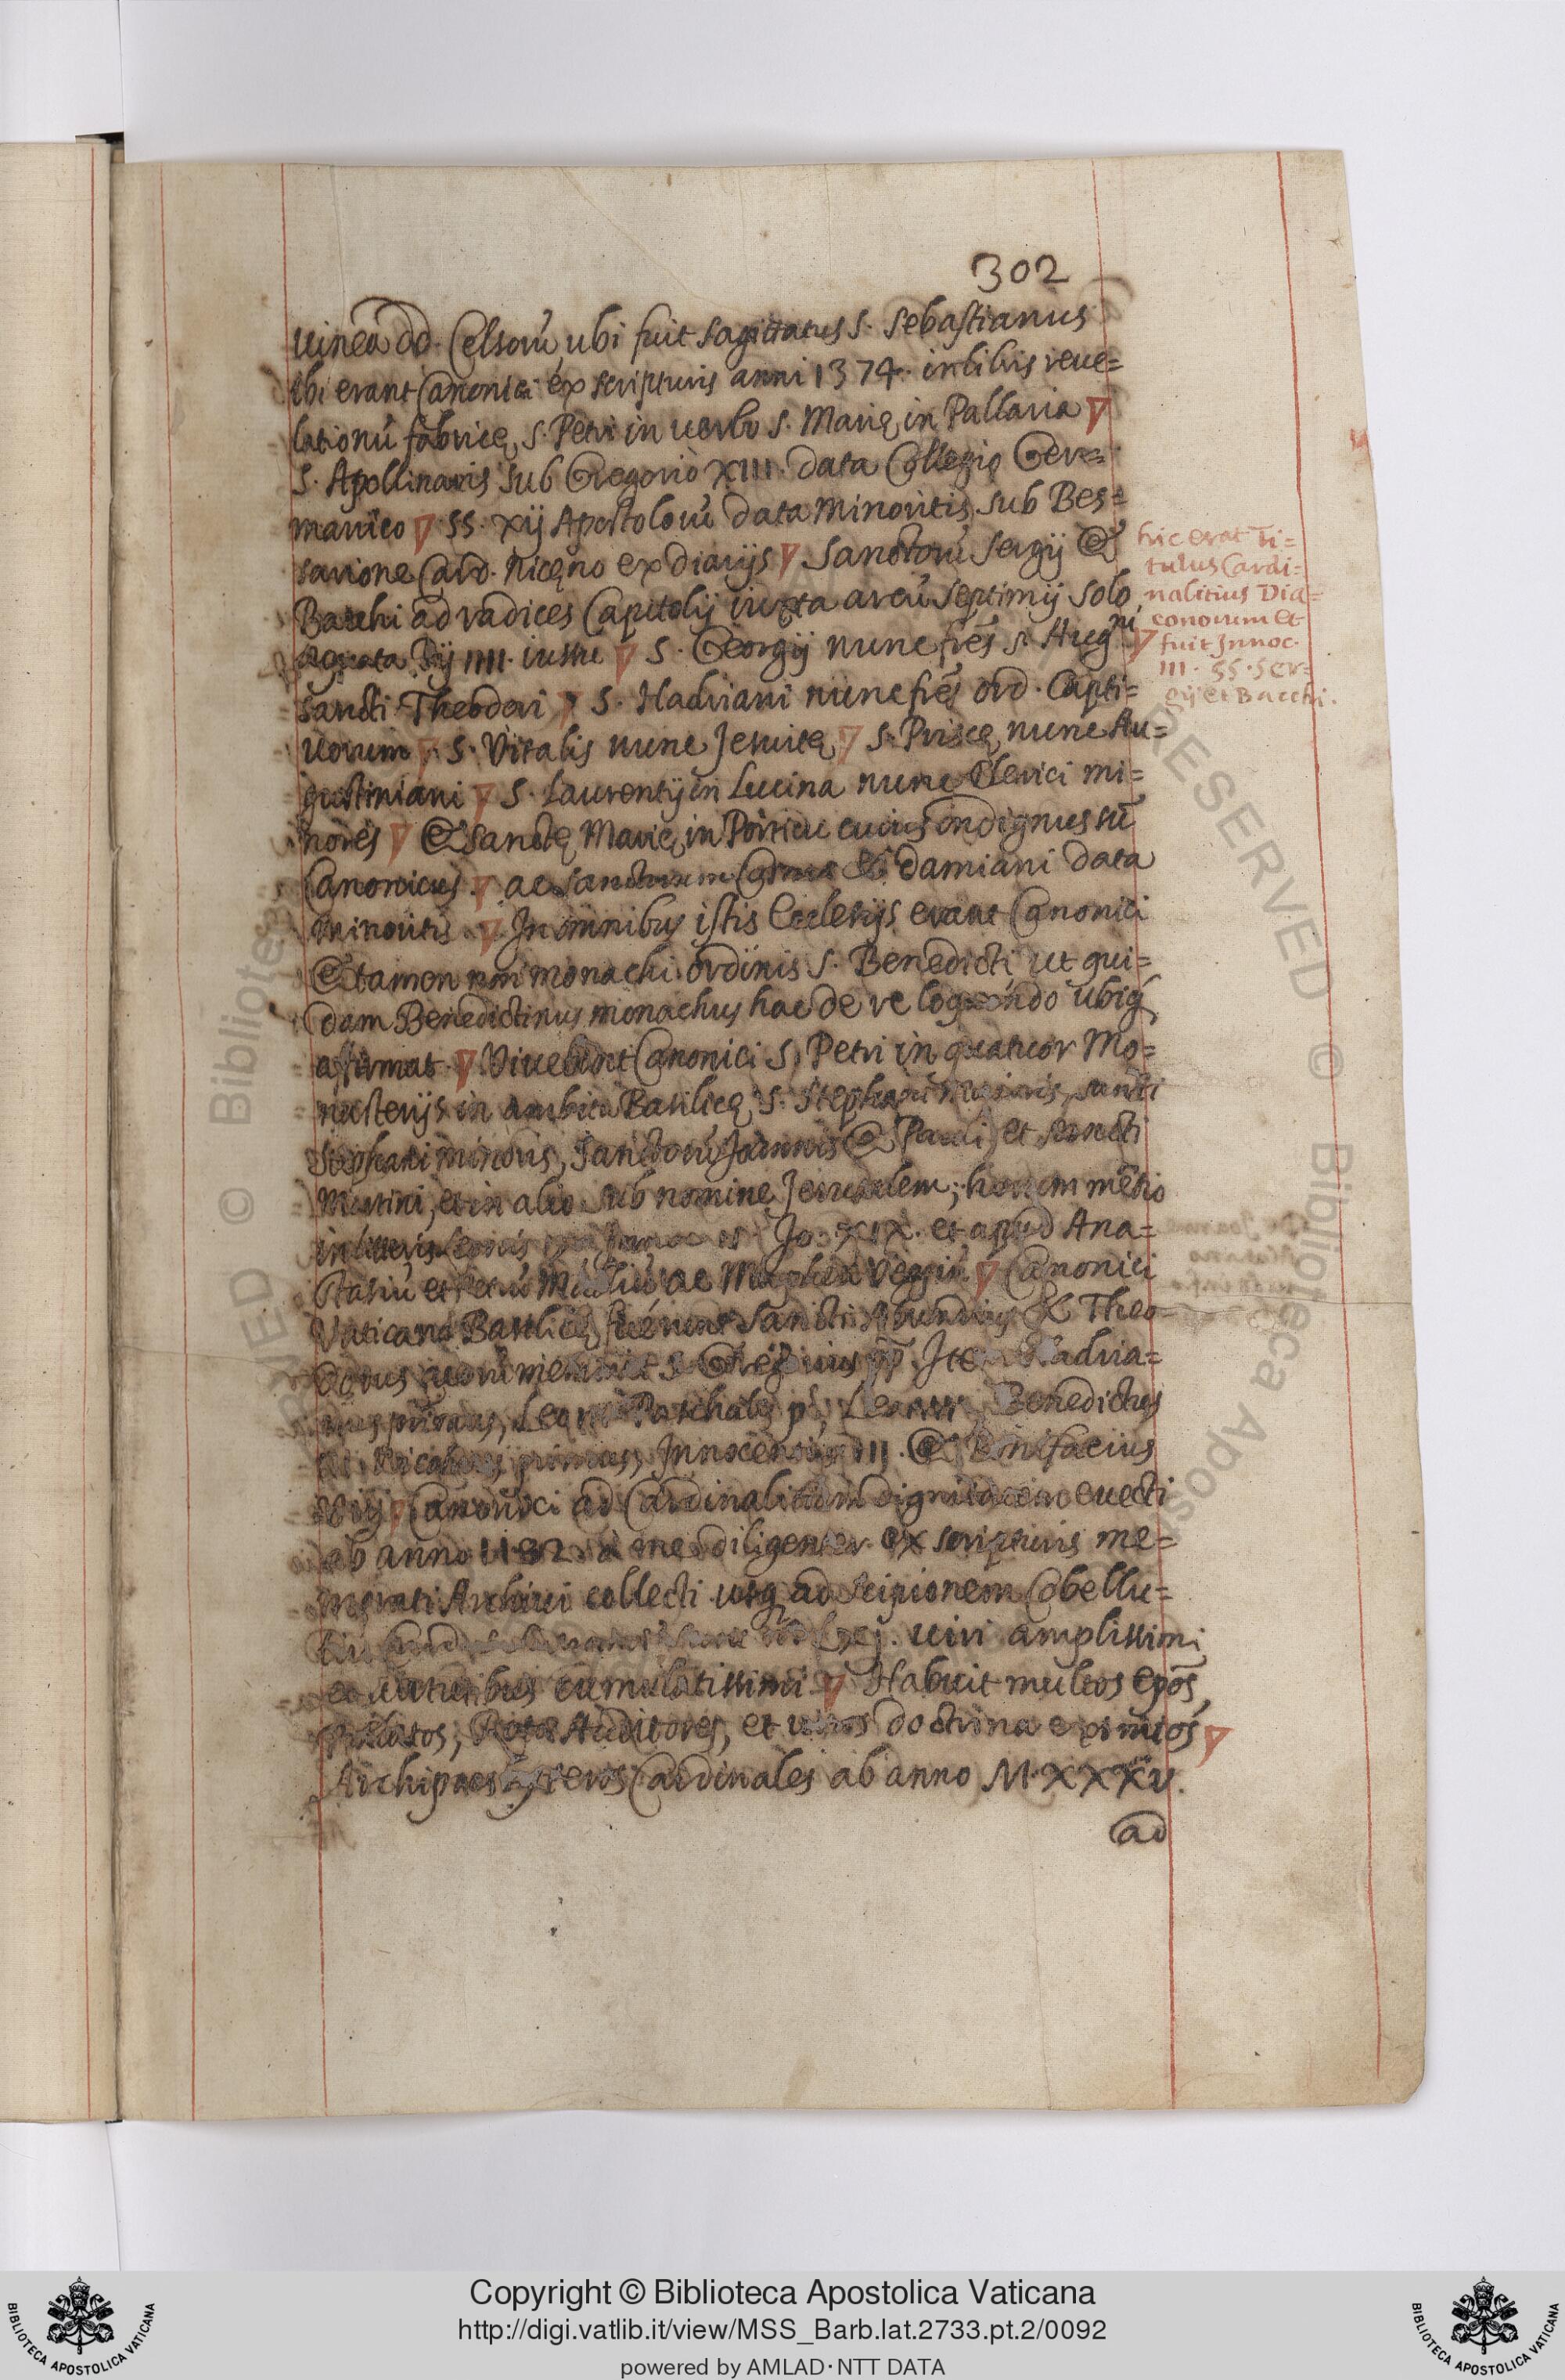 302
uinea dd. Celsorũ ubi fuit sagittatus S. Sebastianus
ibi erant Canonici ex scripturis anni 1374. in libris reue=
lationũ fabricę S. Petri in uerbo S. Marię in Pallaria ∇
S. Apollinaris sub Gregorio XIII. data Collegio Ger=
manico ∇ SS. xij Apostolorũ data Minoritis sub Bes=
sarione Card. Nicęno ex diarijs ∇ Sanctorũ Sergij &
Bacchi ad radices Capitolij iuxta arcũ Septimij solo
ęquata Pij IIII. iussu ∇ S. Georgij nunc frẽs S. Aug.ni ∇
sancti Theodori ∇ S. Hadriani nunc frẽs ord. Capti=
uorum ∇ S. Vitalis nunc Jesuitę ∇ S. Priscę nunc Au=
gustiniani ∇ S. Laurentij in Lucina nunc Clerici mi=
nores ∇ & Sanctę Marię in Porticu cuius indignus sũ
Canonicus ∇ ac Sanctorum Cosmę & Damiani data
Minoritis ∇ In omnibus istis Ecclesijs erant Canonici
& tamen non monachi ordinis S. Benedicti ut qui=
dam Benedictinus monachus hac de re loquendo ubiq
afirmat. ∇ Viuebant Canonici S. Petri in quatuor Mo=
nasterijs in ambitu Basilicę S. Stephani Maioris, sancti
Stephani minoris, Sanctorũ Joannis & Pauli, et sancti
Martini, et in alio sub nomine Jerusalem; horum mẽtio
in litteris Jo: XIX. et apud Ana=
stasiũ et Petrũ Malliũ ac Maphęũ Vegiũ. ∇ Canonici
Vaticanę Basilicę fuerunt Sancti Abundius & Theo=
dorus quorũ meminit S. Gregorius pp. Item Hadria=
nus primus, Leo III Paschalis pˢ, Leo IIII, Benedictus
Nicolaus primus, Innocentius III. & Bonifacius
VIIJ ∇ Canonici ad Cardinalitiam dignitatem euecti
ab anno à me diligenter ex scripturis me=
morati Archiui collecti usq ad Scipionem Cobellu=
tiũ uiri amplissimi
et uirtutibus cumulatissimi ∇ Habuit multos epõs,
Prelatos, Rotę Auditores, et uiros doctrina eximios ∇
Archipresbyteros Cardinales ab anno M.XXXV.
ad
hic erat Ti=
tulus Cardi=
nalitius Dia=
conorum et
fuit Innoc.
III. SS. Ser=
gij et Bacchi.
Copyright © Biblioteca Apostolica Vaticana
http://digi.vatlib.it/view/MSS_Barb.lat.2733.pt.2/0092
powered by AMLAD·NTT DATA
BIBLIOTECA APOSTOLICA VATICANA
BIBLIOTECA APOSTOLICA VATICANA